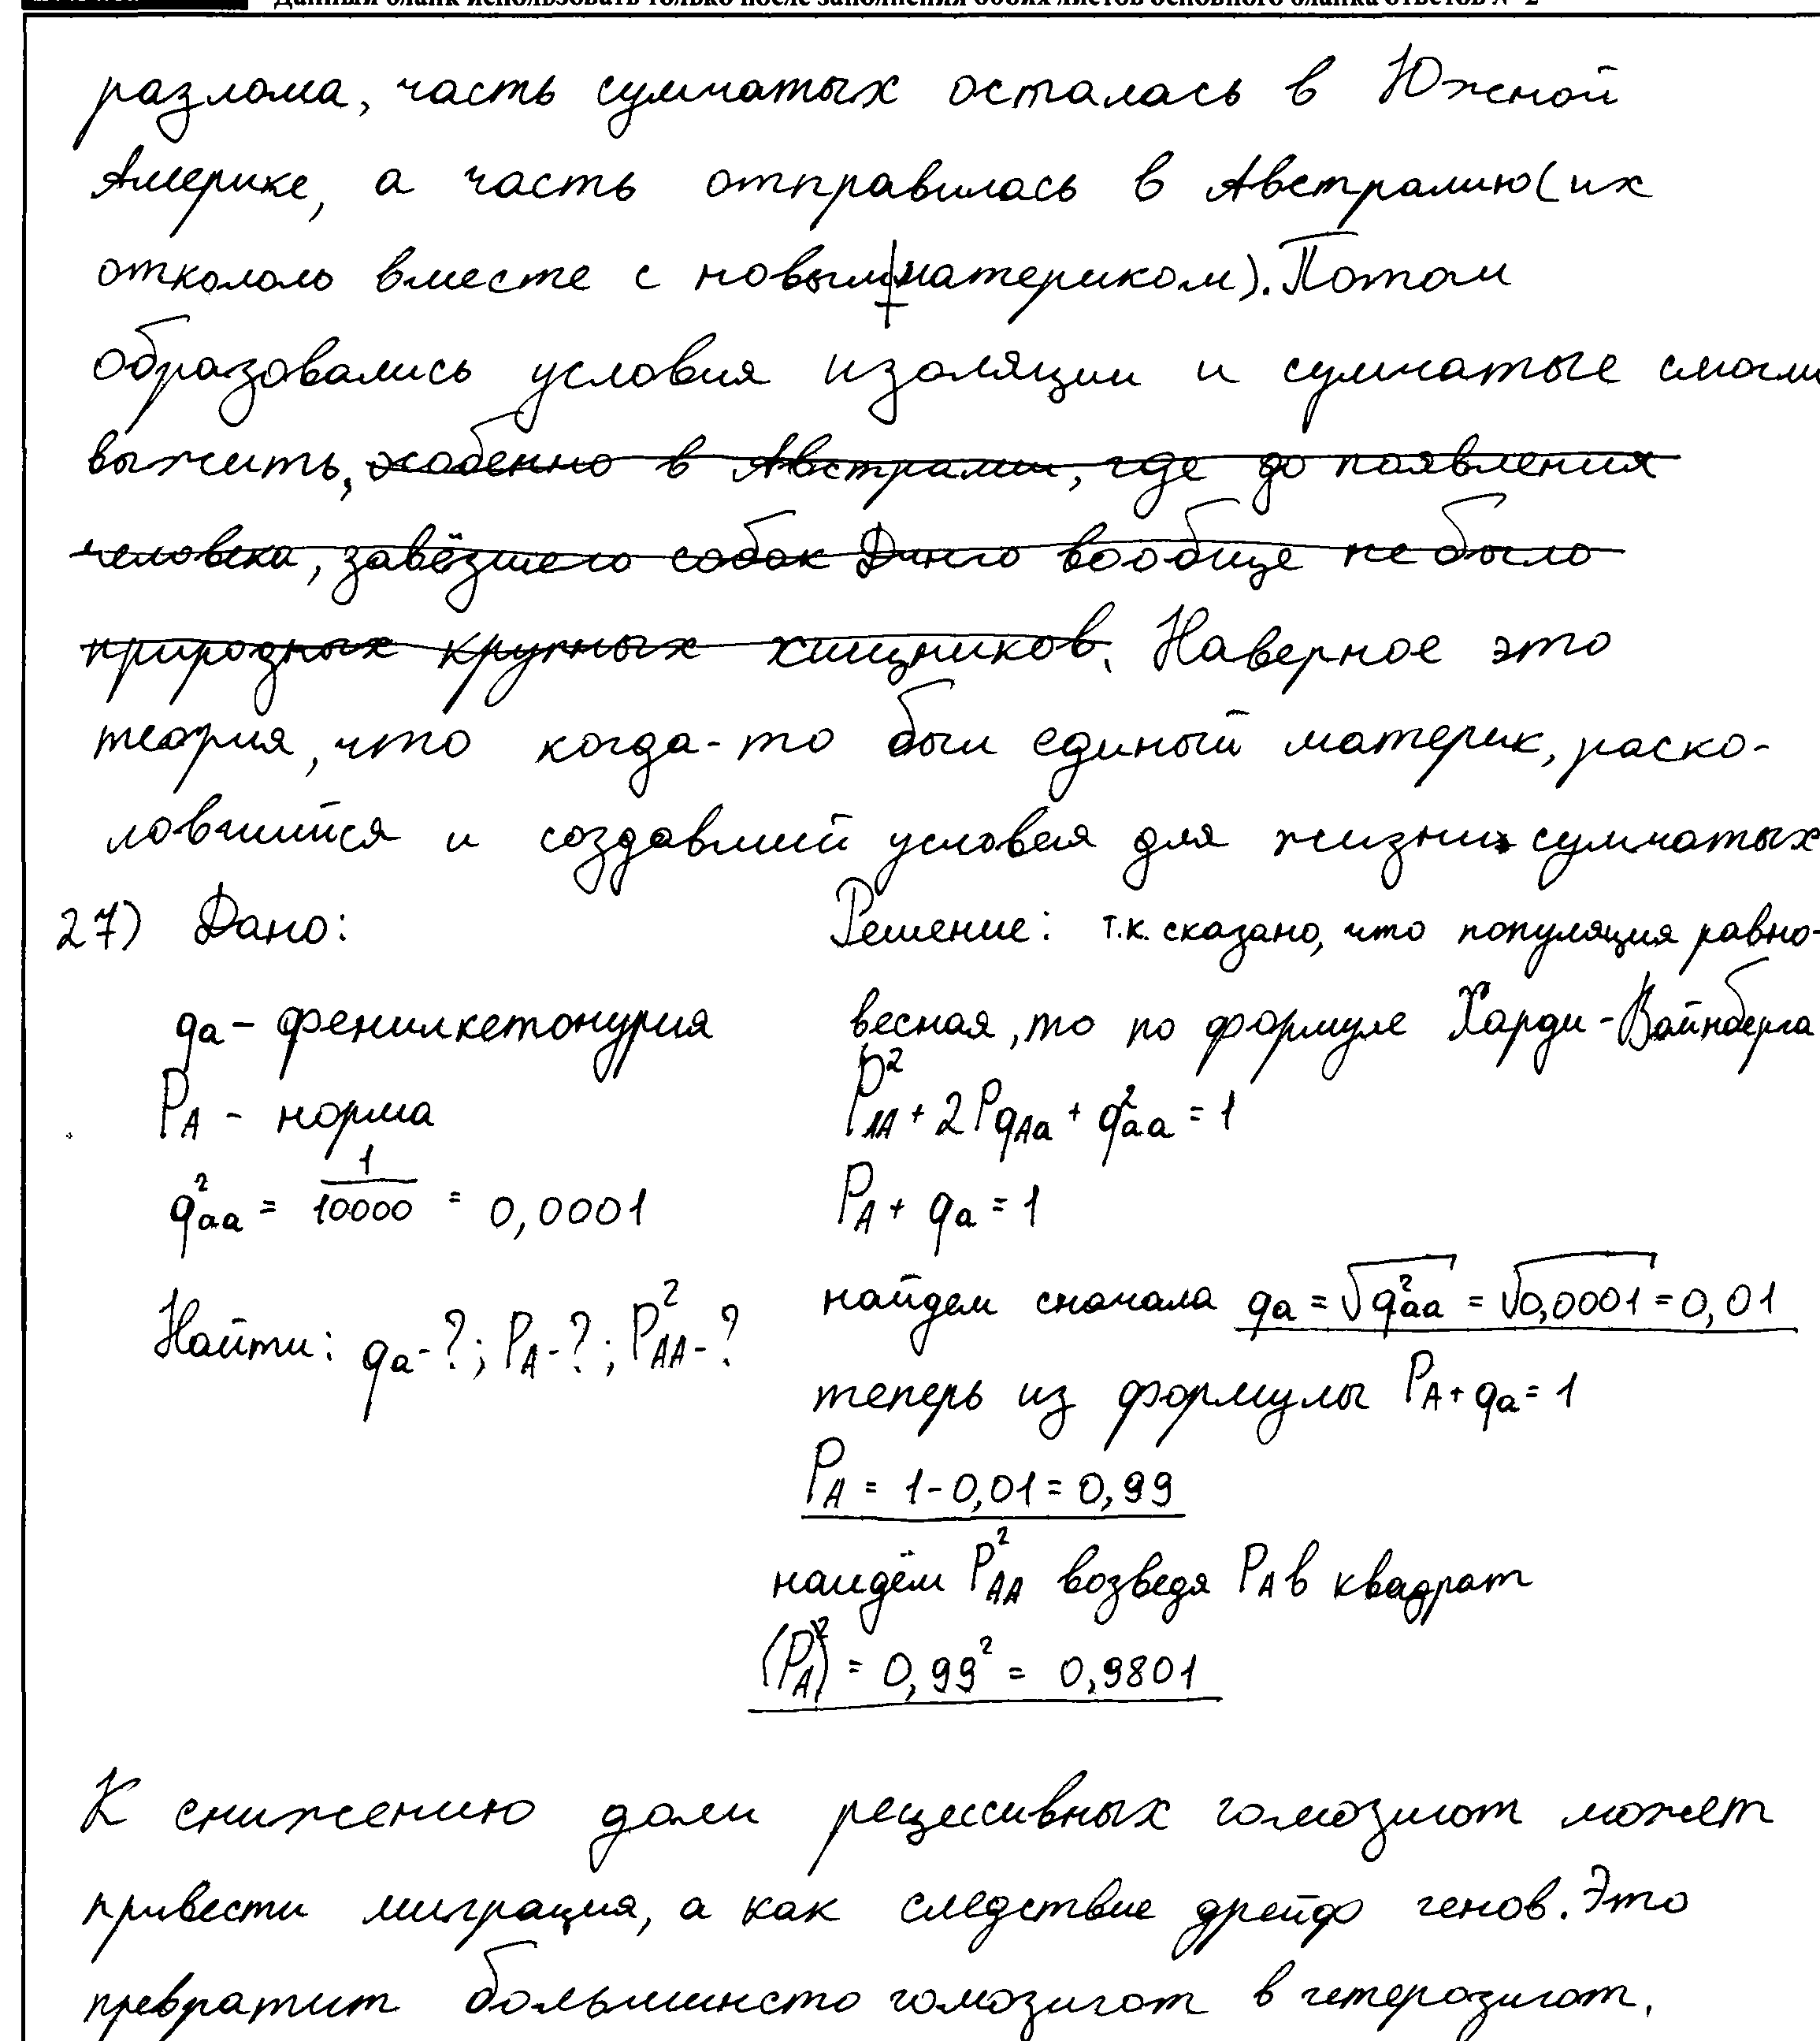 Данный бланк использовать только после заполнения обоих листов основного бланка ответов № 2
разлома, часть сумчатых осталась в Южной
Америке, а часть отправилась в Австралию(их
откололо вместе с новым материком). Потом
образовались условия изоляции и сумчатые смогли
выжить, особенно в Австралии, где до появления
человека, завёзшего собак Динго вообще не было
природных крупных хищников. Наверное это
теория, что когда-то был единый материк, раско-
ловшийся и создавший условия для жизни сумчатых
27) Дано:
qa - фенилкетонурия
PA - норма
q²aa = 1/10000 = 0,0001
Найти: qa-?; PA-?; P²AA-?
Решение: т.к. сказано, что популяция равно-
весная, то по формуле Харди-Вайнберга
P²AA + 2PqAa + q²aa = 1
PA + qa = 1
найдем сначала qa = √q²aa = √0,0001 = 0,01
теперь из формулы PA + qa = 1
PA = 1-0,01 = 0,99
найдём P²AA возведя PA в квадрат
(PA)² = 0,99² = 0,9801
К снижению доли рецессивных гомозигот может
привести миграция, а как следствие дрейф генов. Это
превратит большинсто гомозигот в гетерозигот.